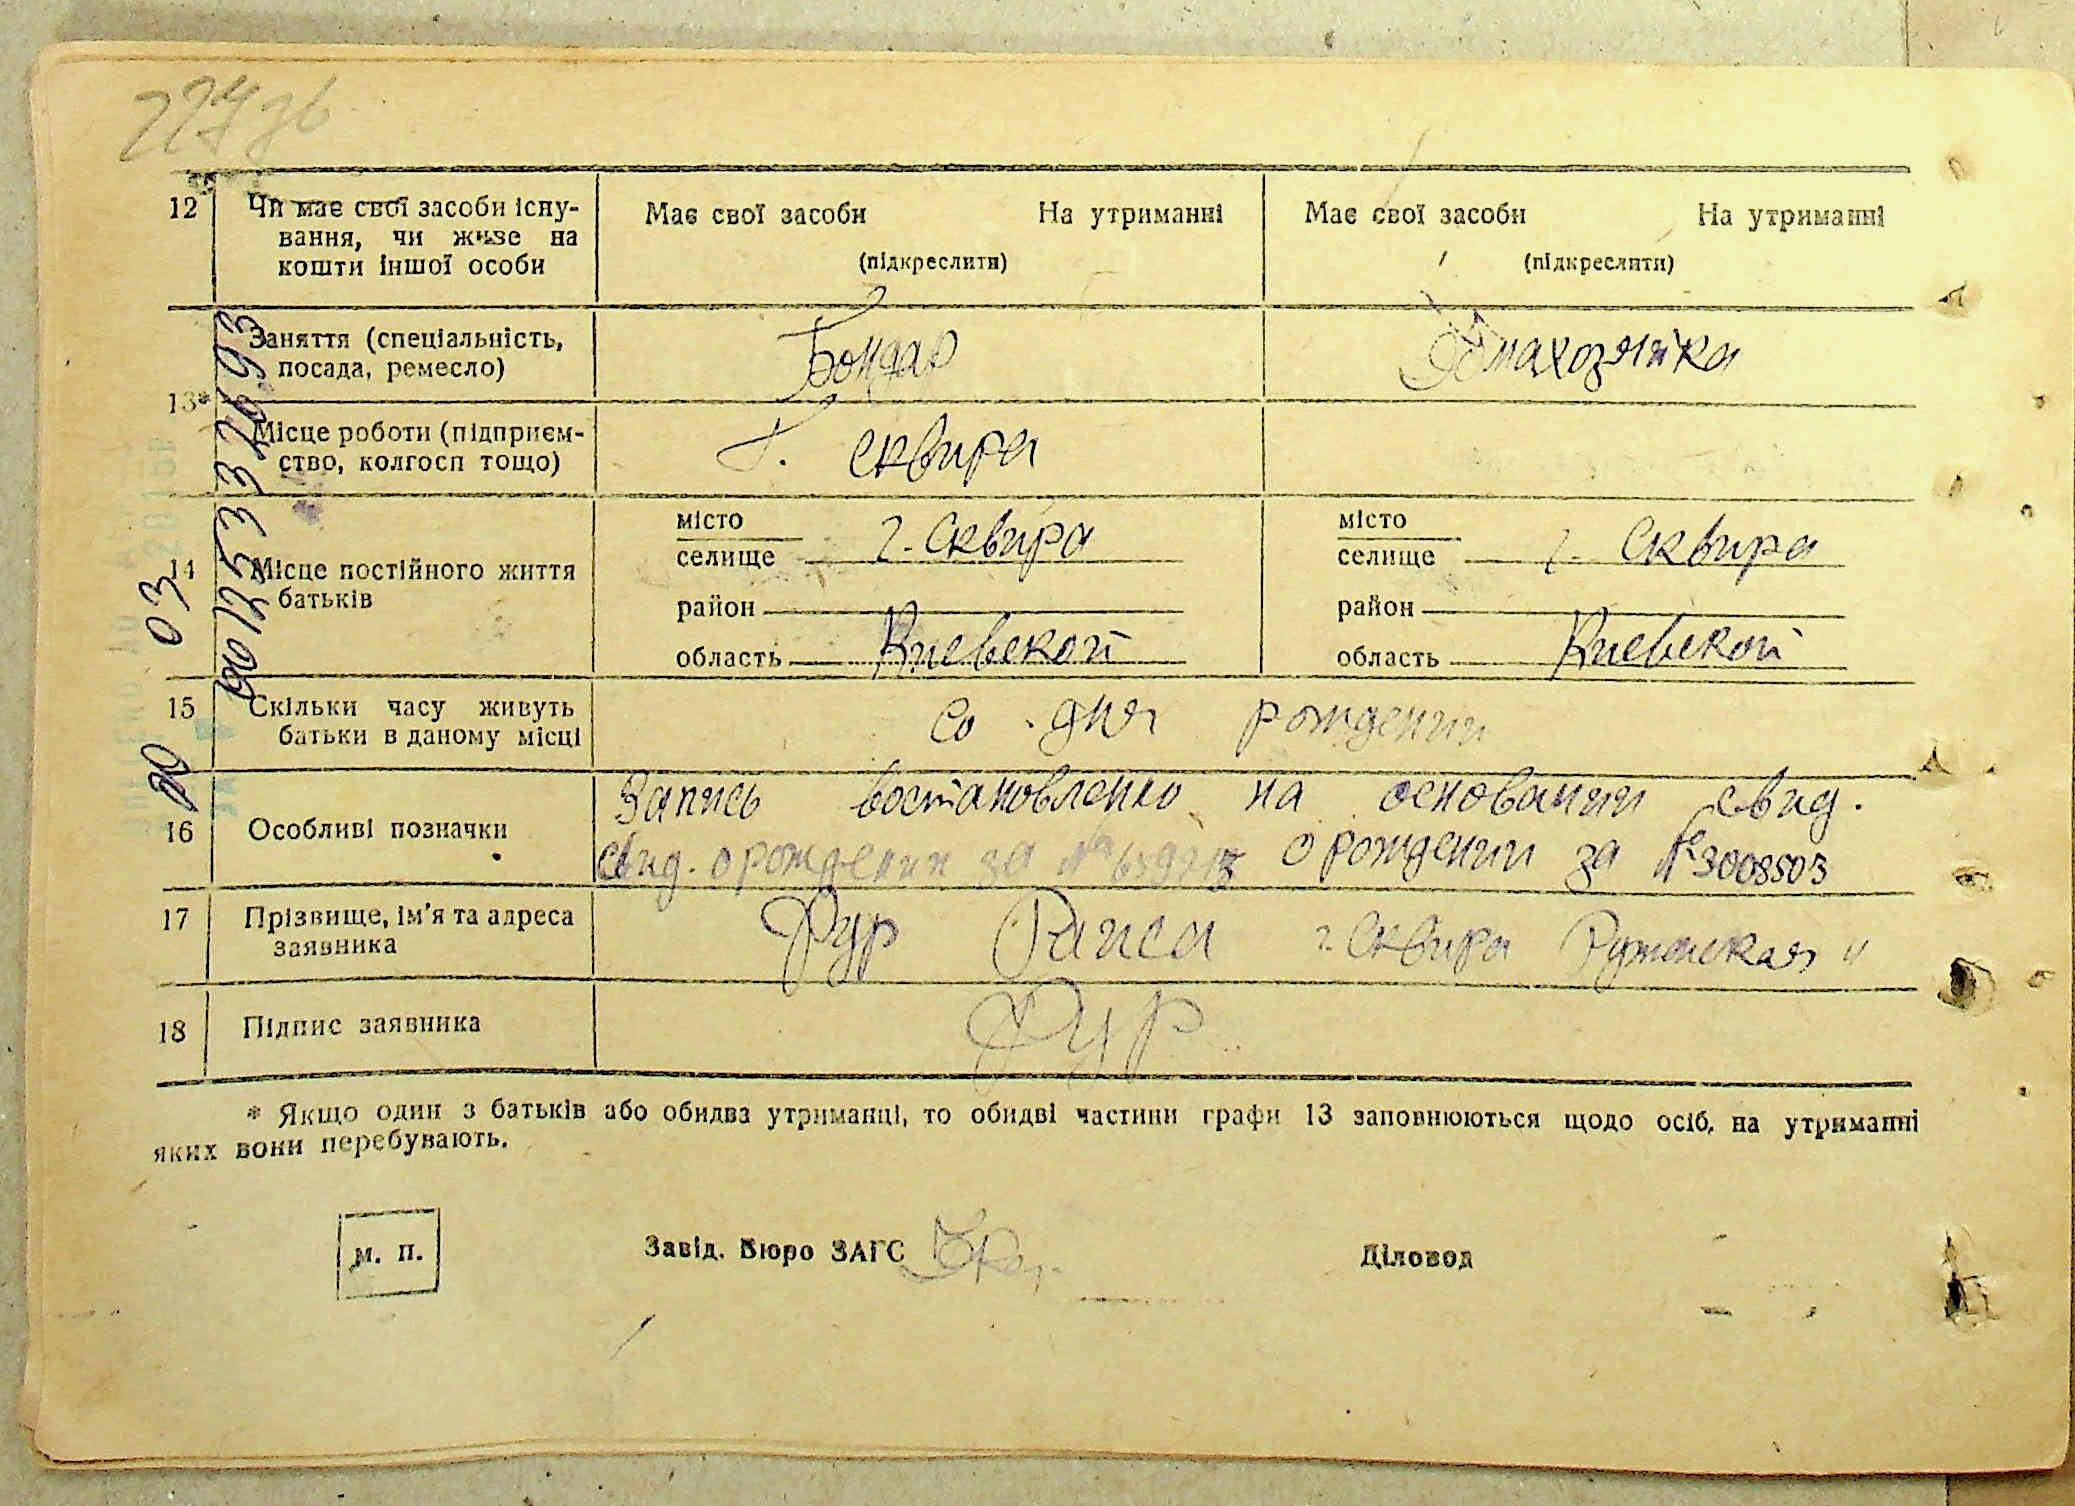 227 зв
12 Чи має свої засоби існу- Має свої засоби На утриманні Має свої засоби На утриманні
вання, чи живе на
кошти іншої особи (підкреслити) (підкреслити)
Заняття (спеціальність, Бондар Домахозяйка
посада, ремесло)
13*
Місце роботи (підприєм- г. Сквира
ство, колгосп тощо)
місто місто
селище г. Сквира селище г. Сквира
14 Місце постійного життя
батьків район район
область Киевской область Киевской
15 Скільки часу живуть со дня рождения
батьки в даному місці
16 Особливі позначки Запись востановлено на основании свид.
свид. о рождении за № о рождении за № 3008503
17 Прізвище, ім'я та адреса Фур Раиса г. Сквира
заявника
18 Підпис заявника Фур
* Якщо один з батьків або обидва утриманці, то обидві частини графи 13 заповнюються щодо осіб, на утриманні
яких вони перебувають.
м. п. Завід. Бюро ЗАГС Діловод
03